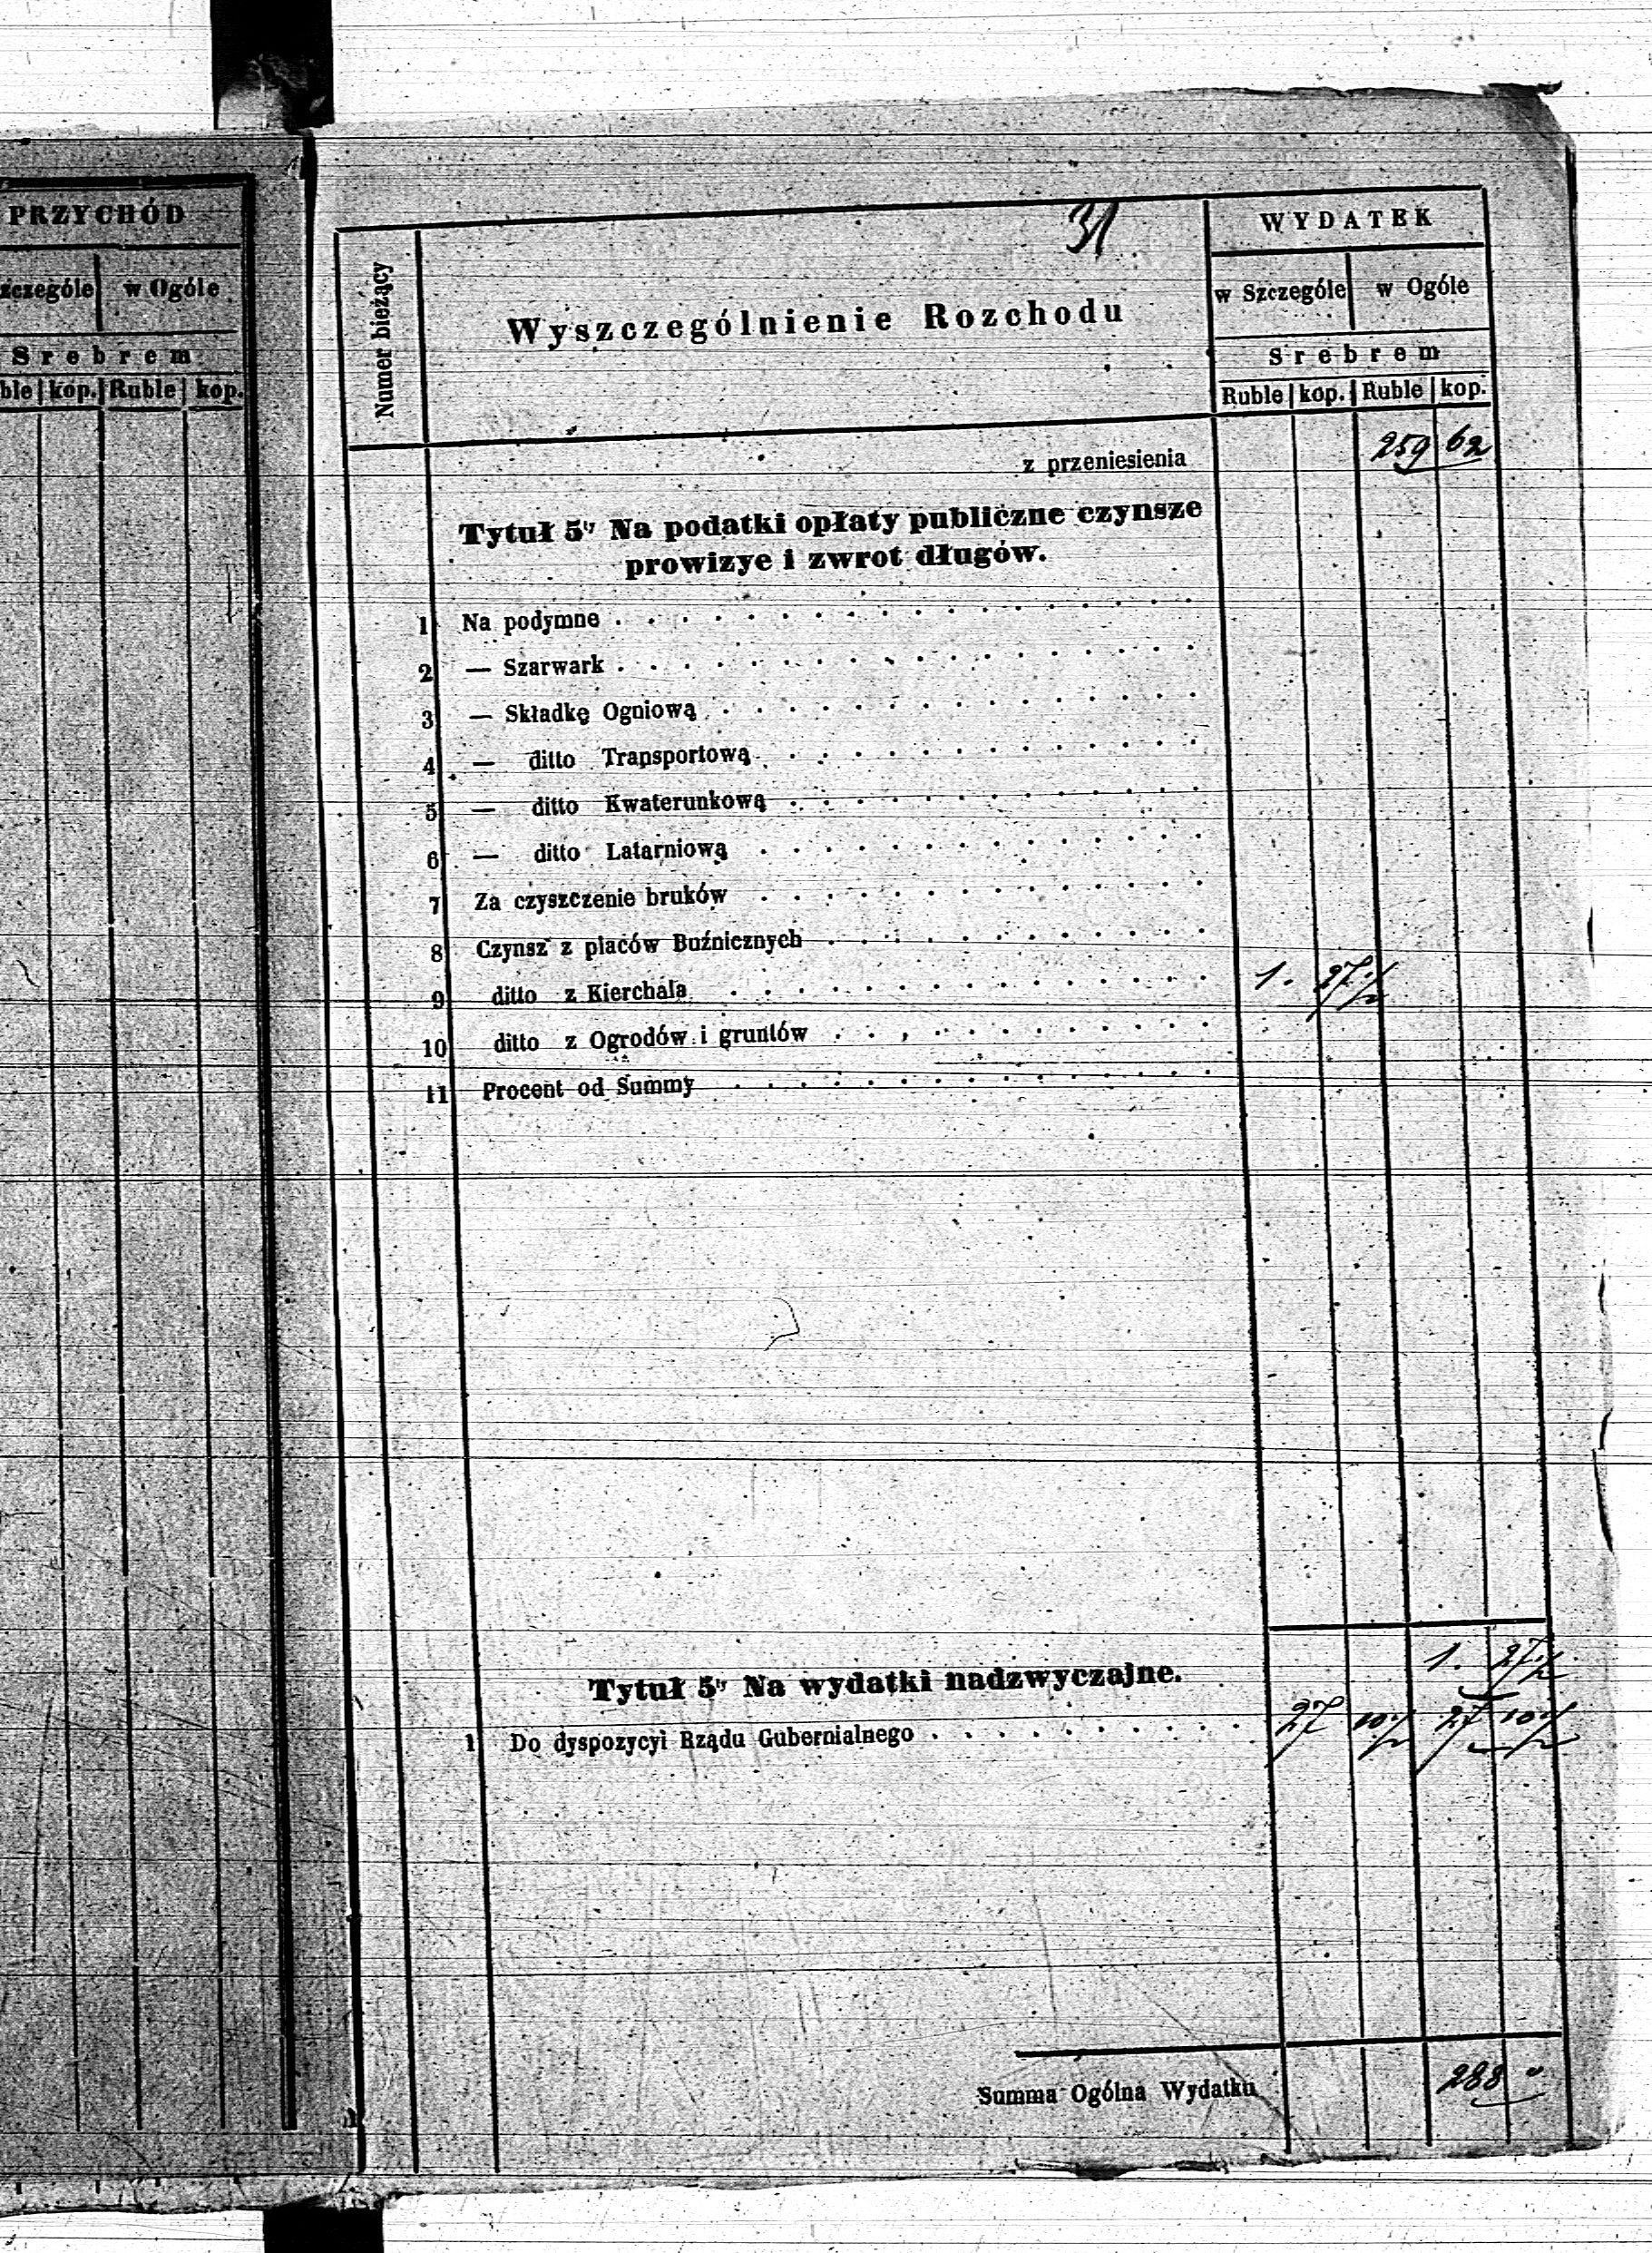 PRZYCHÓD
zczególe w Ogóle
Srebrem
ble kop. Ruble kop.
31
Numer bieżący
Wyszczególnienie Rozchodu
WYDATEK
w Szczególe w Ogóle
Srebrem
Ruble kop. Ruble kop.
z przeniesienia 259 62
Tytuł 5y Na podatki opłaty publiczne czynsze
prowizye i zwrot długów.
1 Na podymne
2 — Szarwark
3 — Składkę Ogniową
4 — ditto Transportową
5 — ditto Kwaterunkową
6 — ditto Latarniową
7 Za czyszczenie bruków
8 Czynsz z placów Buźnicznych
9 ditto z Kierchala 1. 27 1/2
10 ditto z Ogrodów i gruntów
11 Procent od Summy
1. 27 1/2
Tytuł 5y Na wydatki nadzwyczajne.
1 Do dyspozycyi Rządu Gubernialnego 27 10 1/2 27 10 1/2
Summa Ogólna Wydatku 288 "